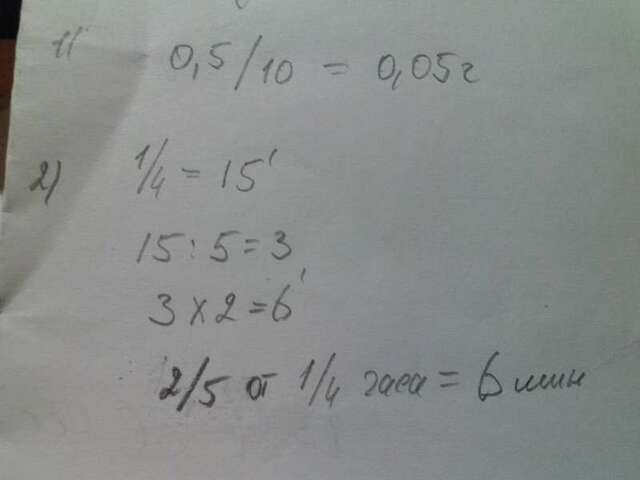 1) 0,5/10 = 0,05г
2) 1/4 = 15'
15:5=3
3x2=6'
2/5 от 1/4 часа = 6 мин